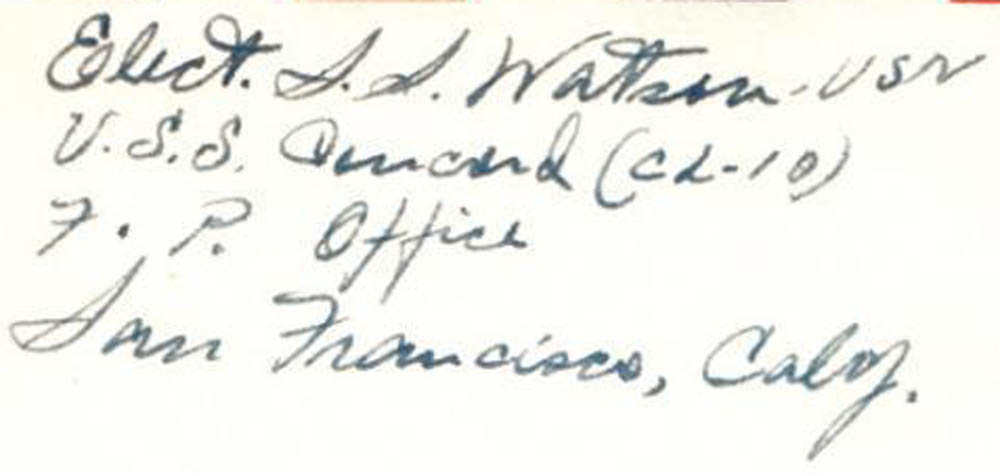 Elect. S.S. Watson - USN
U.S.S. Concord (CL-10)
F. P. Office
San Francisco, Calif.